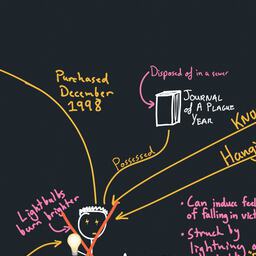 Purchased
December
1998
Disposed of in a sewer
JOURNAL
of A PLAGUE
YEAR
Possessed
Lightbulbs
burn brighter
• Can induce
of falling in
• Struck by
lightning